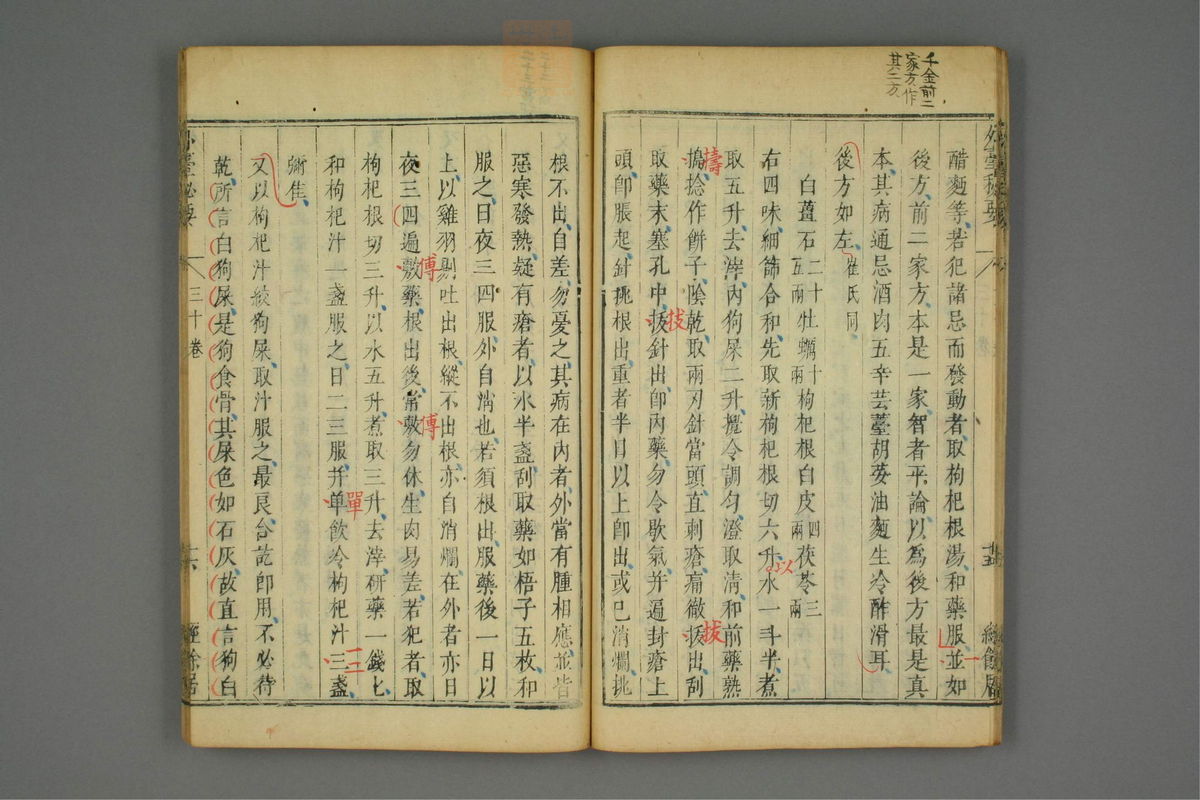 千金前二
家方作
其二方
外臺秘要
三十卷
經餘居
醋麪等若犯諸忌而發動者取枸杞根湯和藥服並如
後方前二家方本是一家智者平論以爲後方最是真
本其病通忌酒肉五辛芸薹胡荽油麪生冷酢滑耳
後方如左崔氏同
白薑石二十五兩牡蠣十兩枸杞根白皮四兩茯苓三兩
右四味細篩合和先取新枸杞根切六升水一斗半煮
以
取五升去滓內狗屎二升攪令調勻澄取清和前藥熟
擣
搗捻作餅子陰乾取兩刃針當頭直刺瘡痛徹拔出刮
拔
取藥末塞孔中拔針出卽內藥勿令歇氣并遍封瘡上
拔
頭卽脹起針挑根出重者半日以上卽出或已消爛挑
根不出自差勿憂之其病在內者外當有腫相應並皆
惡寒發熱疑有瘡者以水半盞刮取藥如梧子五枚和
服之日夜三四服外自消也若須根出服藥後一日以
上以雞羽剔吐出根縱不出根亦自消爛在外者亦日
夜三四遍敷藥根出後常敷勿休生肉易差若犯者取
傅
傅
枸杞根切三升以水五升煮取三升去滓研藥一錢匕
和枸杞汁一盞服之日二三服并单飲冷枸杞汁三盞
單
一二
彌佳
又以枸杞汁絞狗屎取汁服之最良合訖卽用不必待
乾所言白狗屎是狗食骨其屎色如石灰故直言狗白
外臺秘要
三十卷
十六
經餘居